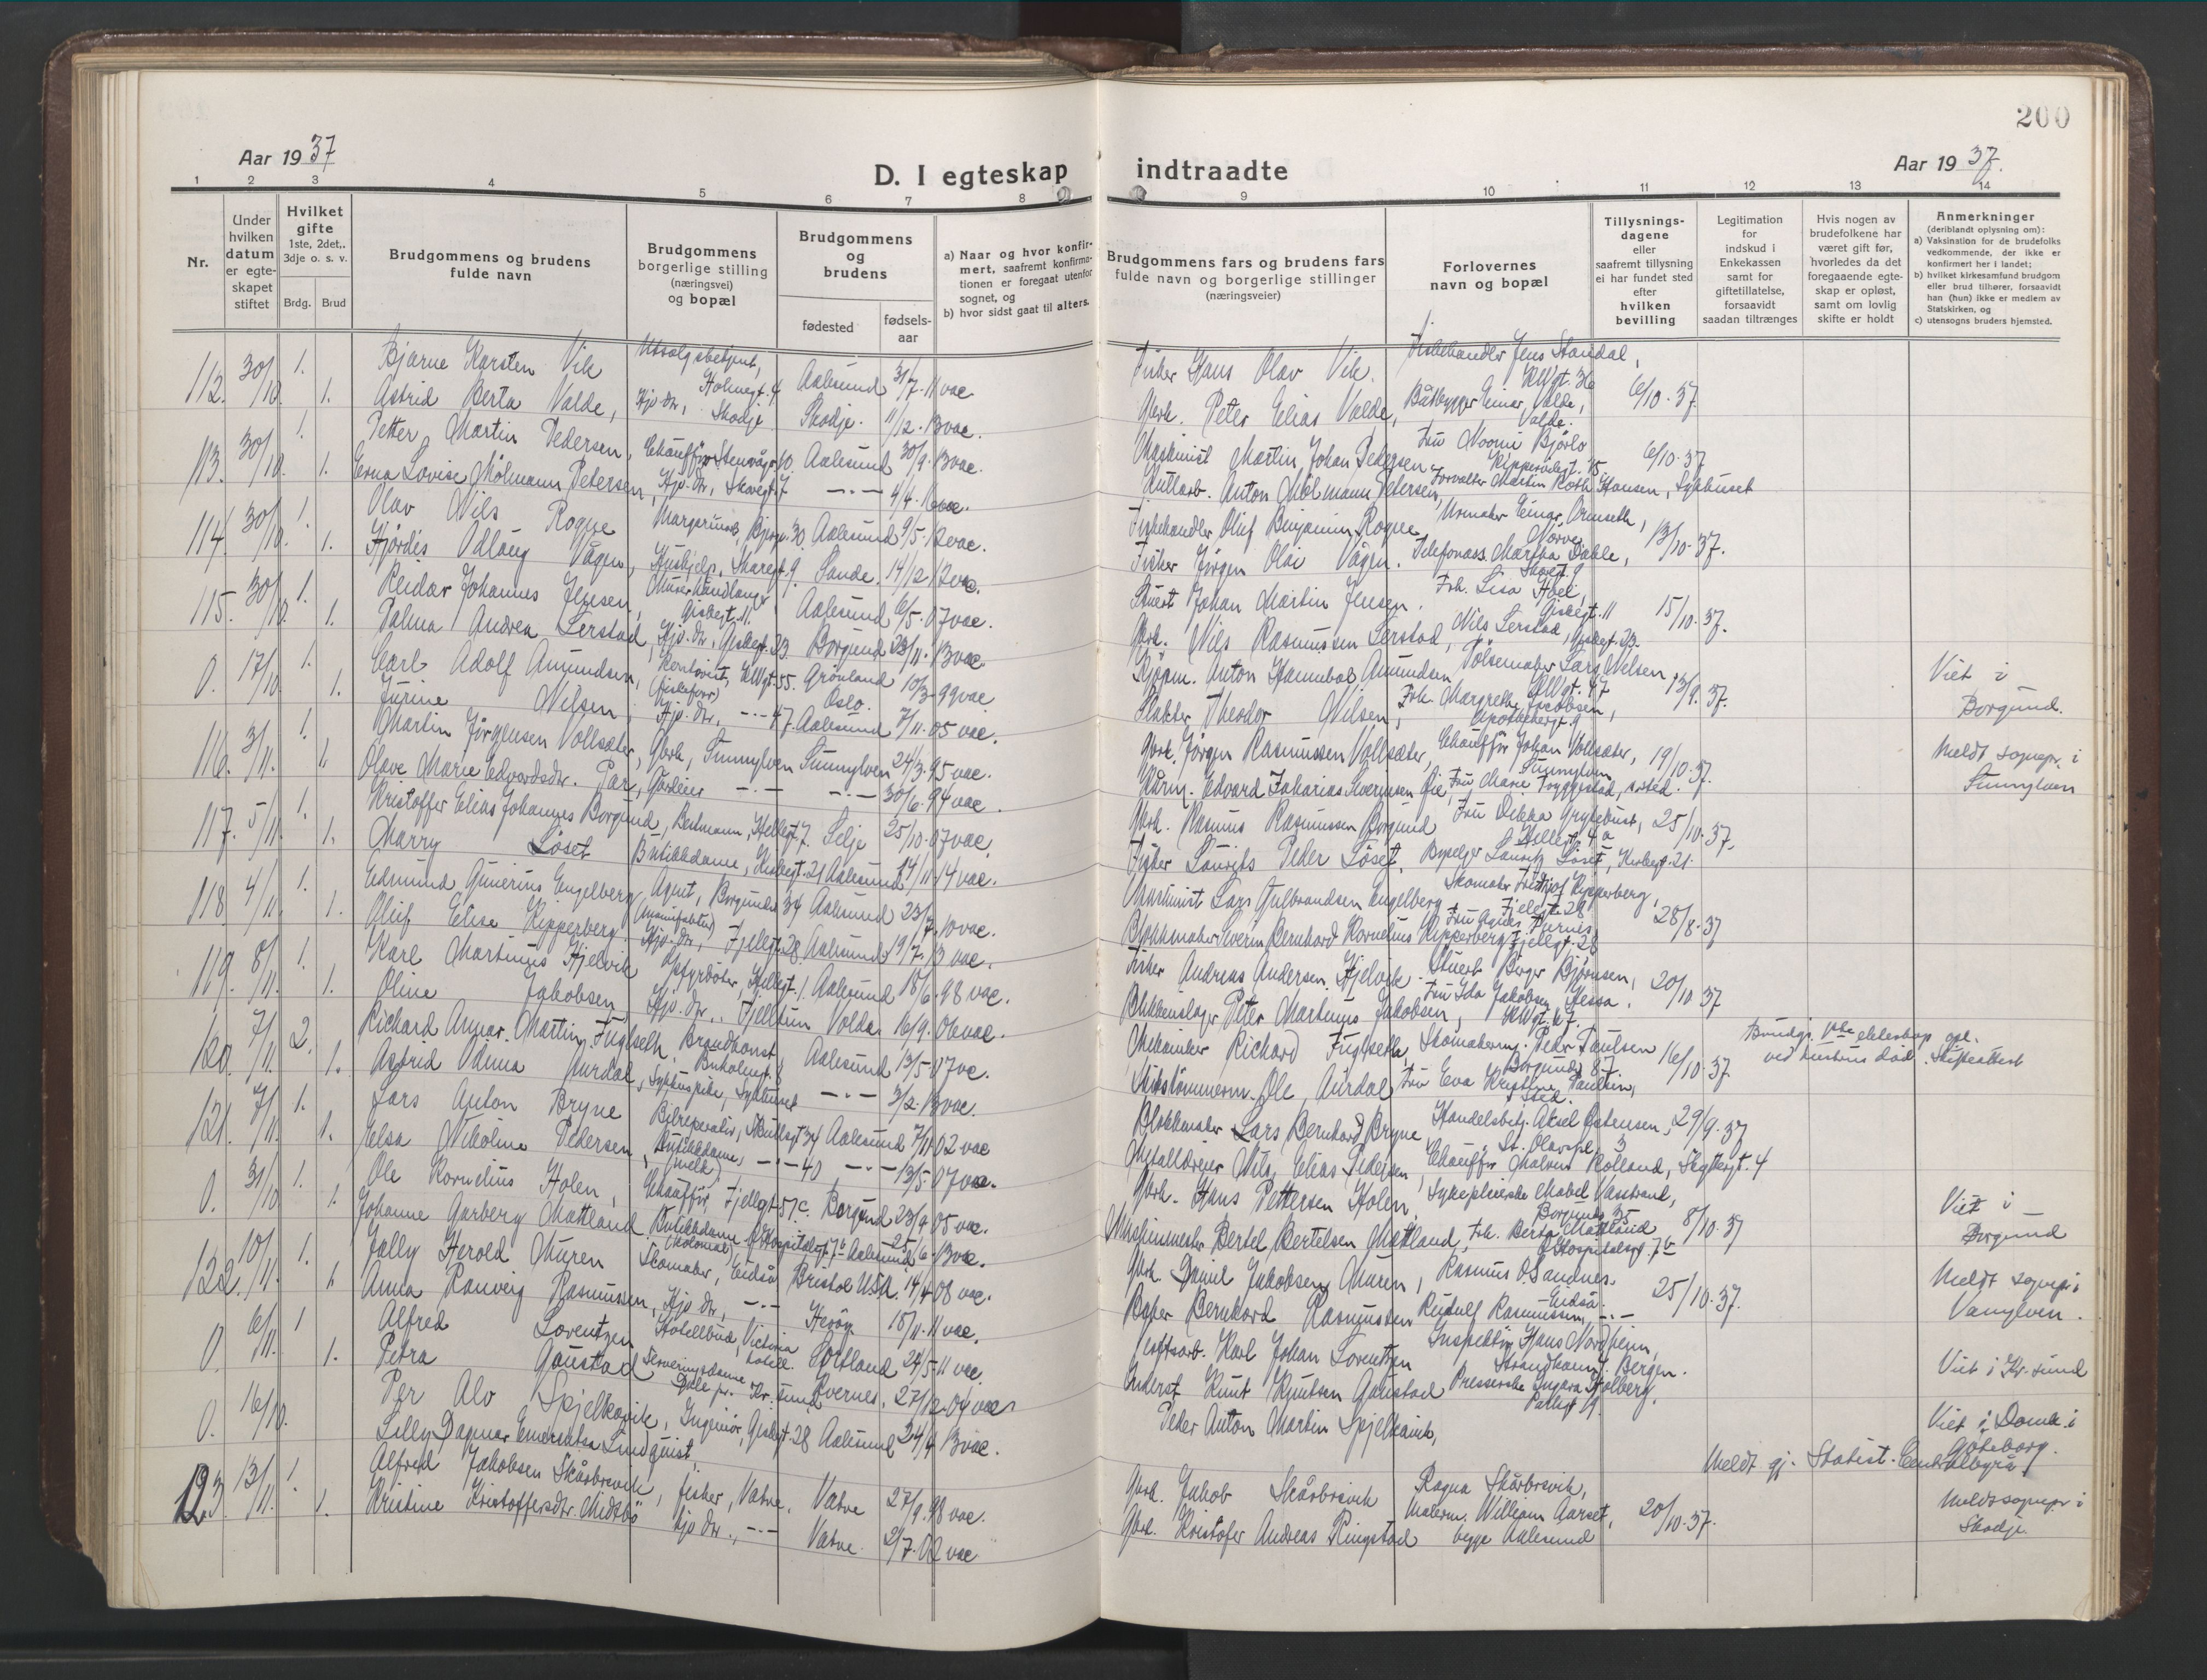 200
Aar 1937
D. I egteskap indtraadte
Aar 1937.
1 2 3 4 5 6 7 8 9 10 11 12 13 14
Nr.
Under hvilken datum er egte-skapet stiftet
Hvilket gifte 1ste, 2det,. 3dje o. s. v.
Brdg. Brud
Brudgommens og brudens fulde navn
Brudgommens borgerlige stilling (næringsvei) og bopæl
Brudgommens og brudens
fødested
fødsels-aar
a) Naar og hvor konfir-mert, saafremt konfirma-tionen er foregaat utenfor sognet, og
b) hvor sidst gaat til alters.
Brudgommens fars og brudens fars fulde navn og borgerlige stillinger (næringsveier)
Forlovernes navn og bopæl
Tillysnings-dagene eller saafremt tillysning ei har fundet sted efter hvilken bevilling
Legitimation for indskud i Enkekassen samt for giftetillatelse, forsaavidt saadan tiltrænges
Hvis nogen av brudefolkene har været gift før, hvorledes da det foregaaende egte-skap er opløst, samt om lovlig skifte er holdt
Anmerkninger (deriblandt oplysning om):
a) Vaksination for de brudefolks vedkommende, der ikke er konfirmert her i landet;
b) hvilket kirkesamfund brudgom eller brud tilhører, forsaavidt han (hun) ikke er medlem av Statskirken, og
c) utensogns bruders hjemsted.
112. 30/10. 1. Bjarne Karsten Vik Utsalgsbetjent, Holmegt. 4 Aalesund 31/7. 11 vac. Fisker Hans Olav Vik. Fiskehandler Jens Standal, KWgt. 36 6/10. 37.
1. Astrid Berta Valde, Hjv. dtr., Skodje Skodje. 11/12. 13 vac. Gbrk. Peter Elias Valde, Båtbygger Einar Valde, Valde.
113. 30/10. 1. Petter Martin Pedersen, Chauffør, Stenvågv. 10. Aalesund 30/9. 13 vac. Maskinist Martin Johan Pedersen Fru Noomi Bjørlo 6/10. 37
1. Erna Lovise Molmann Petersen, Hjv. dtr., Skovgt. 7 —"— 4/4. 16 vac. Anton Molmann Petersen, Forvalter Martin Roth Hansen, Sykhuset
114. 30/10. 1. Olav Nils Rogne 30. Aalesund 9/5. 12 vac. Fiskehandler Oluf Benjamin Rogne Urmaker Einar Ormseth, Nørve 13/10. 37.
1. Hjørdis Odlaug Vågen, Hushjelp, Skaregt. 9. Sande. 14/12. 12 vac. Fisker Jørgen Olai Vågen. Telefonass. Martha Dahle, Skovgt. 9
115. 30/10. 1. Reidar Johannes Jensen, Murerhandlanger Giskegt. 11. Aalesund 6/5. 07 vac. Stuert Johan Martin Jensen. Frk. Lisa Hoel, Giskegt. 11 15/10. 37.
1. Palma Andrea Lerstad, Hjv. dtr., Giskegt. 23. Borgund 23/11. 13 vac. Gbrk. Nils Rasmussen Lerstad, Nils Lerstad, Giskegt. 23.
0. 17/10. 1. Carl Adolf Amundsen, Kontorist, KWgt. 55. Grönland Oslo. 10/3. 99 vac. Kjøpm. Anton Hannibal Amundsen Pølsemaker Lars Nilsen, KWgt. 47 13/9. 37. Viet i Borgund.
1. Jurine Nilsen, Hjv. dtr. —"— 47. Aalesund 7/11. 05 vac. Slakter Theodor Nilsen, Frk. Margrethe Jacobsen, Apothekergt. 9
116. 3/11. 1. Martin Jörgensen Vollsæter, Gbrk, Sunnylven Sunnylven 24/3. 95 vac. Gbrk. Jørgen Rasmussen Vollsæter, Chauffør Johan Vollsæter, Sunnylven 19/10. 37. Meldt sognepr. i Sunnylven
1. Olave Marie Edvardsdtr. —"— —"— 30/6. 94 vac. Edvard Zakarias Severinsen Fru Marie Tryggestad, s.sted.
117. 5/11. 1. Kristoffer Elias Johannes Borgund, Bestmann, Hellegt. 7. Selje 25/10. 07 vac. Gbrk. Rasmus Rasmussen Borgund Fru Rikka Grytebust, Hellegt. 4a 25/10. 37.
1. Marry Löset Butikkdame, Kirkegt. 21 Aalesund 14/11. 14 vac. Fisker Laurits Peder Löset, Byselger Laurits Löset, Kirkegt. 21.
118. 4/11. 1. Edmund Gunerius Engelberg Agent, (Manufaktur) Borgundv. 34 Aalesund 23/7. 10 vac. Maskinist Lars Gulbrandsen Engelberg, Skomaker Fridtjof Kipperberg, Fjellgt. 28 28/8. 37
1. Oluf Elise Kipperberg Hjv. dtr., Fjellgt. 28. Aalesund 19/7. 13 vac. Severin Bernhard Kornelius Kipperberg Fjellgt. 28
119. 8/11. 1. Karl Martinus Hjelvik Hellegt. 1. Aalesund 18/6. 98 vac. Fisker Andreas Andersen Hjelvik. Stuert Birger Bjørnsen, 20/10. 37
1. Oline Jakobsen Hjv. dtr., Fjelltun Volda 16/9. 06 vac. Blikkenslager Peter Martinus Jakobsen, Fru Ida Jakobsen Nessa. KWgt. 67.
120. 7/11. 2. Richard Annar Martin Fuglseth, Brandkonst. Aalesund 13/5. 07 vac. Mekaniker Richard Fuglseth Skomakerm. Peder Paulsen Borgundv. 87 16/10. 37 Brudg. 1ste ekteskap opl. ved hustrus død. Skifteattest
1. Astrid Vilma Aurdal, Sykhuspike, Sykhuset —"— 3/2. 13 vac. Ole Aurdal Fru Eva Kristine Paulsen, s. sted.
121. 7/11. 1. Lars Anton Bryne Bilreparatør, 34 Aalesund 7/11. 02 vac Blokkmaker Lars Bernhard Bryne Handelsbetj. Aksel Østensen, St. Olavspl. 3 29/9. 37
1. Elsa Nikoline Pedersen, Butikkdame, (melk) —"— 40 —"— 13/5. 07 vac. Metalldreier Nils Elias Pedersen, Chauffør Molvin Rolland,
0. 31/10. 1. Ole Kornelius Holen, Chauffør, Fjellgt. 51c. Borgund 23/9. 05 vac. Gbrk. Hans Pettersen Holen, Sykepleierske Mabel Vasstrand, Borgundv. 35 8/10. 37 Viet i Borgund
1. Johanne Garberg Mattland Butikkdame (kolonial), Ø. Hospitalsgt. 7b Aalesund 25/6. 13 vac. Maskinmester Bertel Bertelsen Mattland, Frk. Berta Mattland Ø Hospitalsgt. 7b
122. 10/11. 1. Jally Herold Muren Skomaker, Eidså Bristol USA. 14/4. 08 vac. Gbrk. Daniel Jakobsen Muren, Rasmus O. Sandnes. Eidså. 25/10. 37. Meldt sognepr. i Vanylven.
1. Anna Ranveig Rasmussen, Hjv. dtr., —"— Herøy 18/11. 11 vac. Baker Bernhard Rasmussen Rudulf Rasmussen, —"—
0. 6/11. 1 Alfred Lorentzen Hotellbud, Victoria hotell. Sortland 24/5. 11 vac. Karl Johan Lorentzen Inspektör Hans Nordheim, Strandhavn, Bergen. Viet i Kr. sund
1. Petra Gaustad Serveringsdame Kr. sund Kvernes. 27/12. 04 vac. Inderst Knut Knutsen Gaustad Presserske Ingora Solberg. Parkgt. 9.
0. 16/10. Per Alv Spjelkavik, Ingeniør, Giskegt. 28 Aalesund 24/4. 13 vac. Peter Anton Martin Spjelkavik, Meldt gj. Statist. Centralbyrå Viet i Domk. i Göteborg.
Lilly Dagmar Emerentia Lindquist,
123 13/11. 1. Alfred Jakobsen Skårbrevik, fisker, Vatne. Vatne 27/9. 98 vac. Gbrk. Jakob Skårbrevik Ragna Skårbrevik, 20/10. 37. Meldt sognepr. i Skodje.
1. Kristine Kristoffersdtr. Midtbø hjv dtr., —"— Vatne. 2/7. 02 vac Gbrk. Kristofer Andreas Ringstad Malerm. William Aarset, begge Aalesund